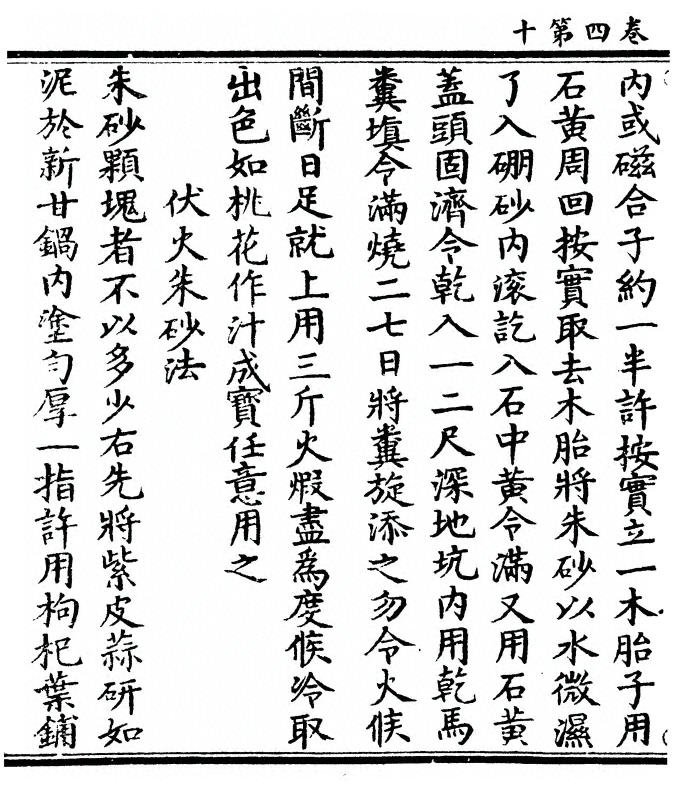 卷四第十
内或磁合子約一半許按實立一木胎子用
石黄周回按實取去木胎將朱砂以水微濕
了入硼砂内滚訖入石中黄令滿又用石黄
蓋頭固濟令乾入一二尺深地坑内用乾馬
糞塡令滿燒二七日將糞旋添之勿令火候
間斷日足就上用三斤火煆盡爲度候冷取
出色如桃花作汁成寳任意用之
伏火朱砂法
朱砂顆塊者不以多少右先將紫皮蒜研如
泥於新甘鍋内塗勻厚一指許用枸杞葉鋪